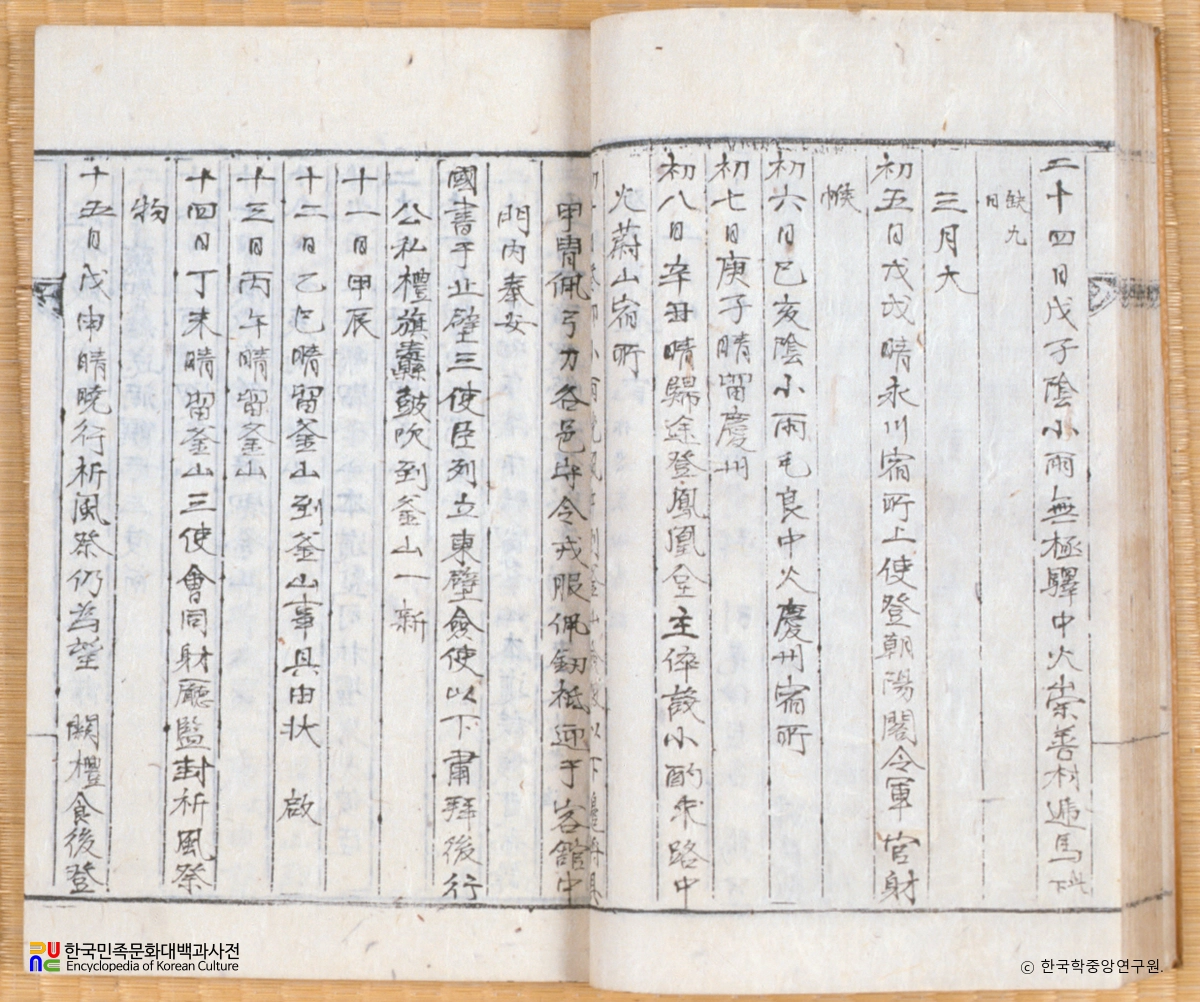 二十四日戊子陰小雨無極驛中火崇善村遞馬此下
缺九日
三月大
初五日戊戌晴永川宿所上使登朝陽閣令軍官射
帿
初六日己亥陰小雨毛良中火慶州宿所
初七日庚子晴留慶州
初八日辛丑晴歸途登鳳凰坮主倅設小酌來路中
火蔚山宿所
甲冑佩弓刀各邑守令戎服佩釼祗迎于客館中
門內奉安
國書于北壁三使臣列立東壁僉使以下肅拜後行
公私禮旗纛鼓吹到釜山一新
十一日甲辰
十二日乙巳晴留釜山到釜山軍具由狀 啟
十三日丙午晴留釜山
十四日丁未晴留釜山三使會同射廳監封祈風祭
物
十五日戊申晴曉行祈風祭仍爲望 闕禮食後登
한국민족문화대백과사전
Encyclopedia of Korean Culture
ⓒ 한국학중앙연구원.